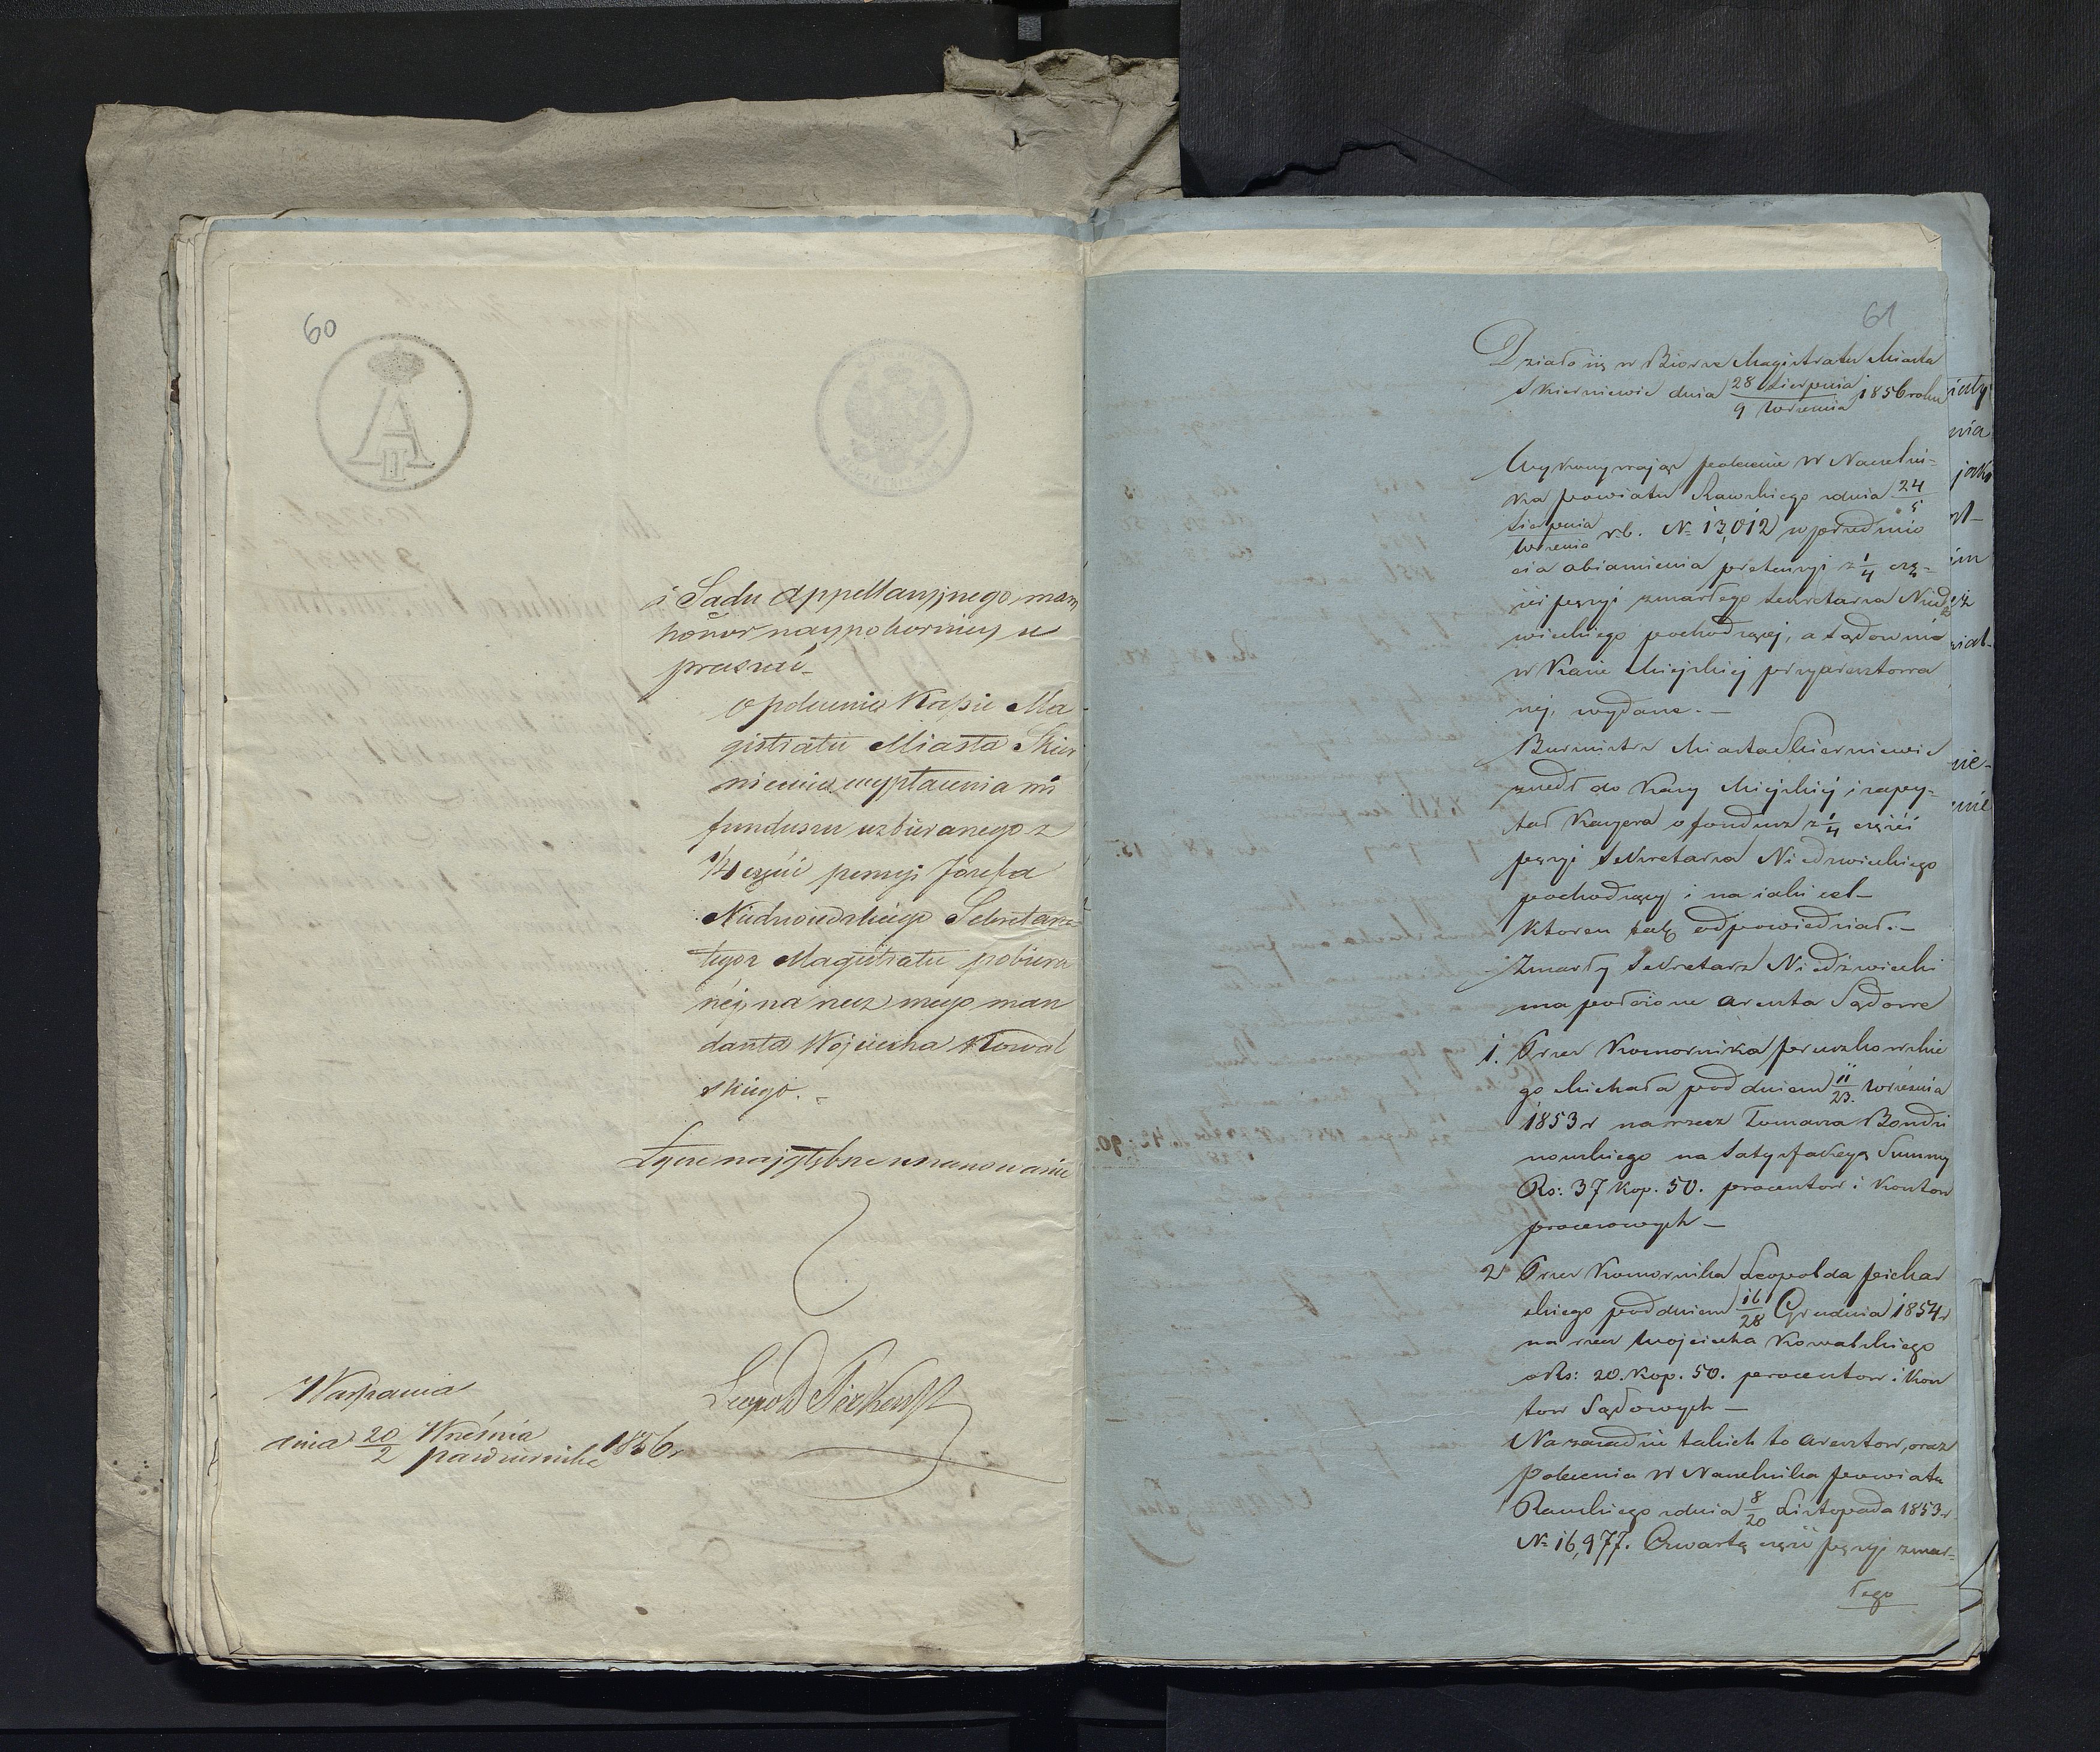 60
A
II
i Sadu Appellacyjnego mam
honor naypokorniey u
praszać
o polecenie Kassie Ma
gistratu Miasta Skier
niewic wypłacenia mi
funduszu uzbieranego z
1/4 części pensyi Józefa
Niedzwiedzkiego Sekretarza
tegoż Magistratu pobiera
néj, na rzecz mego man
danta Wojciecha Kowal
skiego.
Łącze najgłębsze uszanowanie
Leopold
Warszawa
dnia 20/2 Września/Pazdziernika 1856 r
61
Działo się w Biorze Magistratu Miasta
Skierniewic dnia 28 Sierpnia/9 Września 1856 roku
Wykonywając polecenie W Naczelni-
ka powiatu Rawskiego z dnia 24/5
Sierpnia/Września r.b. № 13,012 w przedmio
cie obiaśnienia pretensyi z 1/4 czę-
ści pęsyi zmarłego Sekretarza Niedz
wieckiego pochodzącej, a sądownie
w Kasie Miejskiej przyaresztowa
néj, wydane.—
Burmistrz Miasta Skierniewic
zszedł do Kasy Miejskiéj i zapy-
tał Kasyera o fundusz z 1/4 części
pęsyi Sekretarza Niedzwieckiego
pochodzący i na iaki cel—
Ktoren tak odpowiedział.—
Zmarły Sekretarz Niedzwiecki
ma położone areszta Sądowe
1. Przez Komornika
go Michała pod dniem 11/23. Września
1853 r na rzecz Tomasza
na satysfakcyą Summy
Rs: 37 Kop. 50. procentow i Kosztow
processowych—
2 Przez Komornika Leopolda
skiego pod dniem 16/28 Grudnia 1854 r
na rzecz Wojciecha Kowalskiego
o Rs: 20. Kop. 50. procentow i Kosz
tow Sądowych—
Na zasadzie takich to aresztow, oraz
polecenia W Naczelnika powiatu
Rawskiego z dnia 8/20 Listopada 1853 r
№ 16,977. Czwartą część pęsyi zmar-
łego